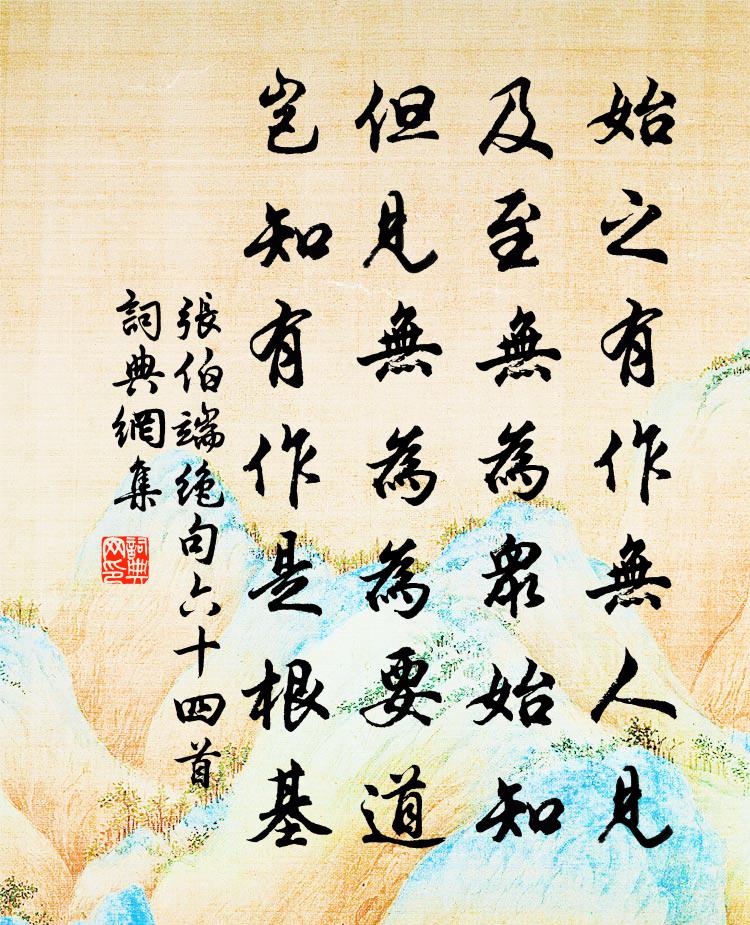 始之有作無人見
及至無為眾始知
但見無為為要道
豈知有作是根基
張伯端絶句六十四首
詞典網集
詞典
网印